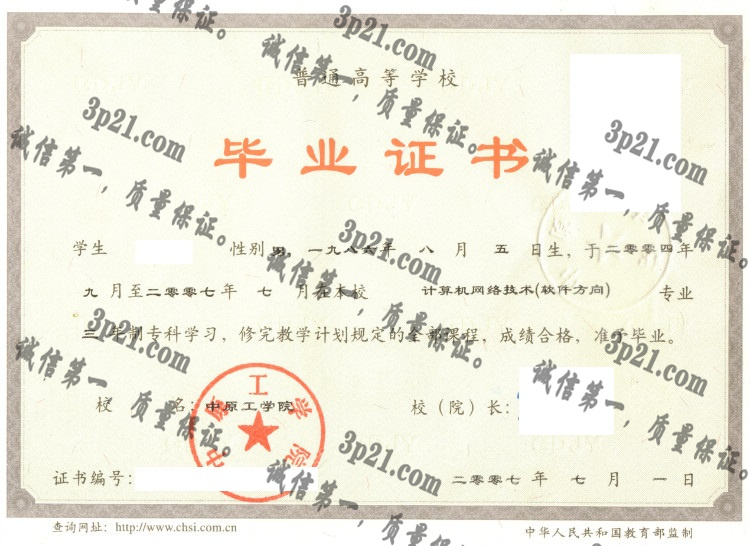 普通高等学校
毕业证书
学生 性别 男，一九八六年 八 月 五 日生，于二〇〇四年
九 月至二〇〇七年 七 月在本校 计算机网络技术(软件方向) 专业
三 年制专科学习，修完教学计划规定的全部课程，成绩合格，准予毕业。
校 名：中原工学院 校（院）长：
中原工学院
证书编号： 二〇〇七 年 七 月 一 日
查询网址：http://www.chsi.com.cn 中华人民共和国教育部监制
3p21.com
诚信第一，质量保证。
3p21.com
诚信第一，质量保证。
3p21.com
诚信第一，质量保证。
3p21.com
诚信第一，质量保证。
3p21.com
诚信第一，质量保证。
3p21.com
诚信第一，质量保证。
3p21.com
诚信第一，质量保证。
量保证。